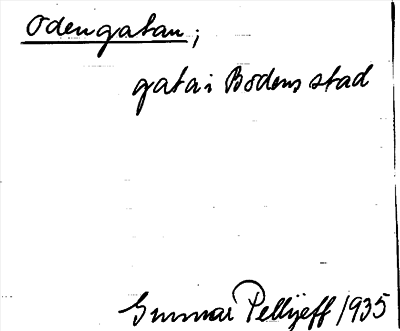 Odengatan;
gata i Bodens stad
Gunnar Pellijeff 1935